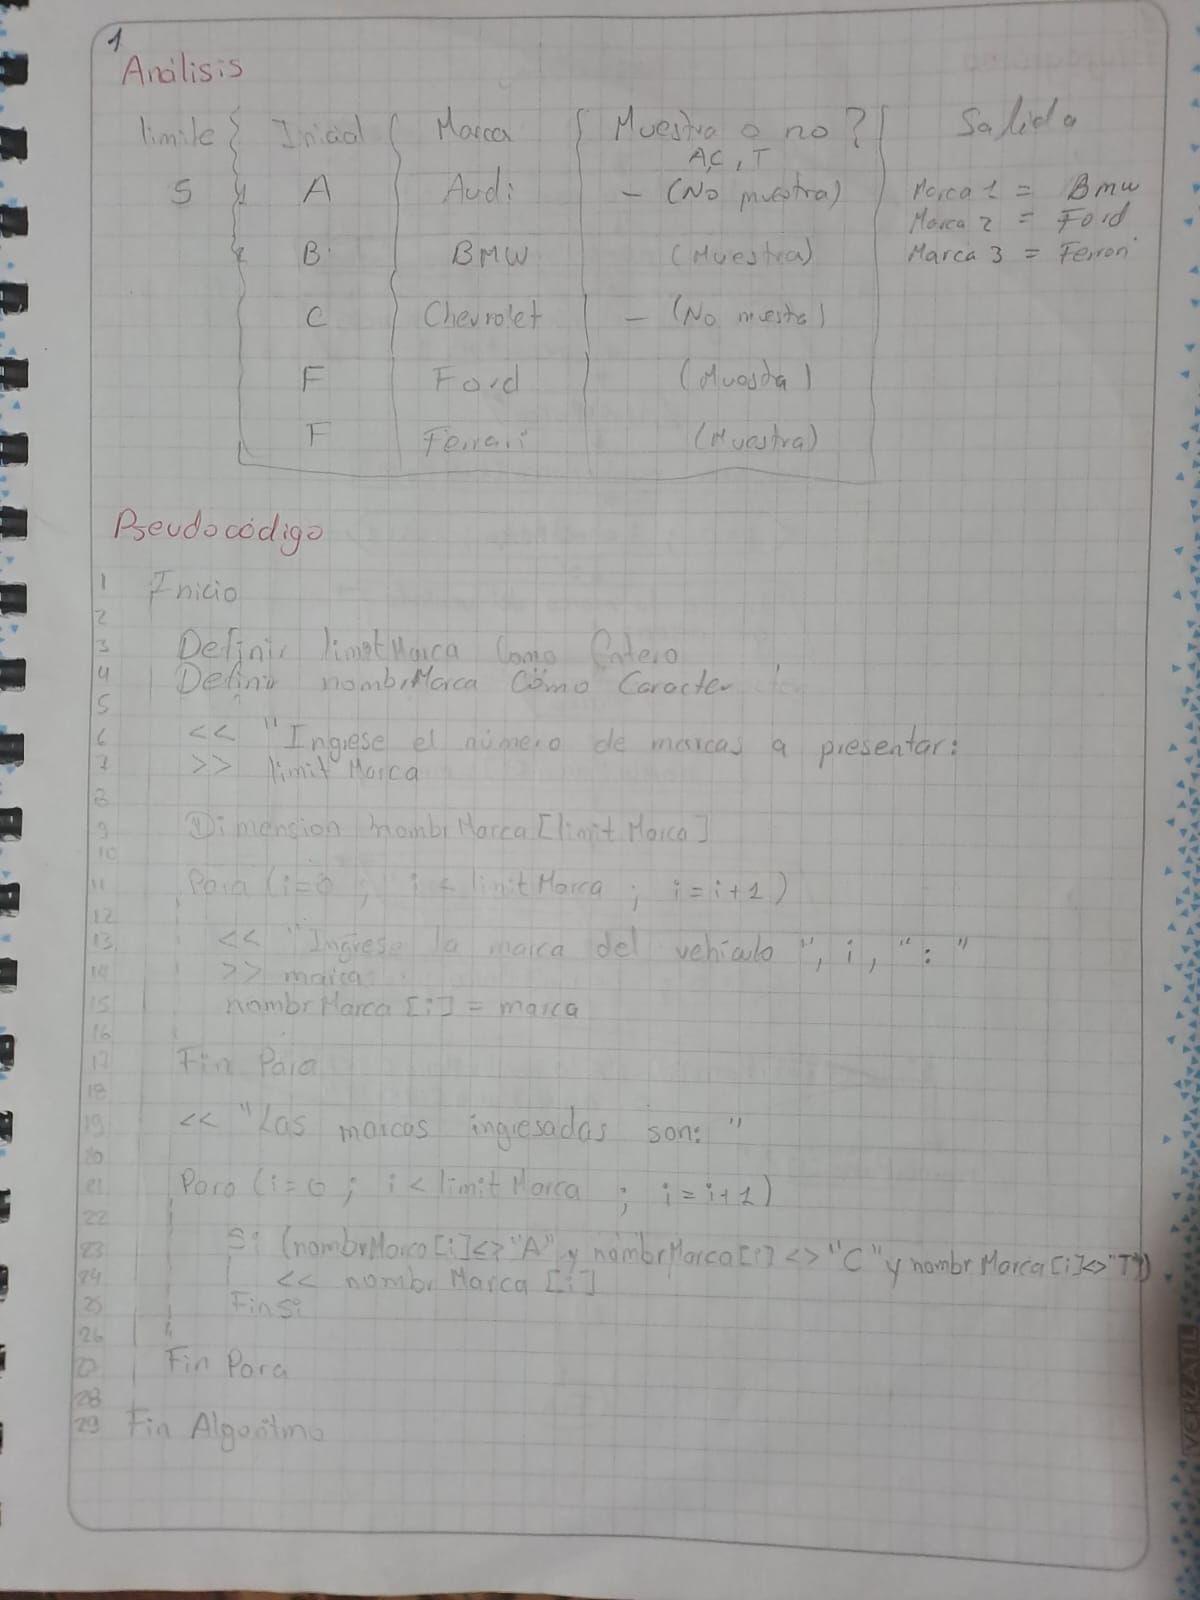 1
Análisis
limite Inicial Marca Muestra o no? Salida
A,C, T
5 A Audi - (No muestra) Marca 1 = Bmw
Marca 2 = Ford
B BMW (Muestra) Marca 3 = Ferrari
C Chevrolet - (No muestra)
F Ford (Muestra)
F Ferrari (Muestra)
Pseudocódigo
1 Inicio
2
3 Definir limitMarca Como Entero
4 Definir nombrMarca Como Caracter
5
6 << "Ingrese el número de marcas a presentar:
7 >> limit Marca
8
9 Dimension nombrMarca [limit Marca]
10
11 Para (i=0 ; i < limitMarca ; i=i+1)
12
13 << "Ingrese la marca del vehiculo ", i, ":"
14 >> marca
15 nombrMarca [i] = marca
16
17 Fin Para
18
19 << "Las marcas ingresadas son: "
20
21 Para (i=0 ; i < limit Marca ; i=i+1)
22
23 Si (nombrMarca[i]<>"A" y nombrMarca[i] <> "C" y nombrMarca[i]<>"T")
24 << nombrMarca [i]
25 Fin Si
26
27 Fin Para
28
29 Fin Algoritmo
VERIZATIL